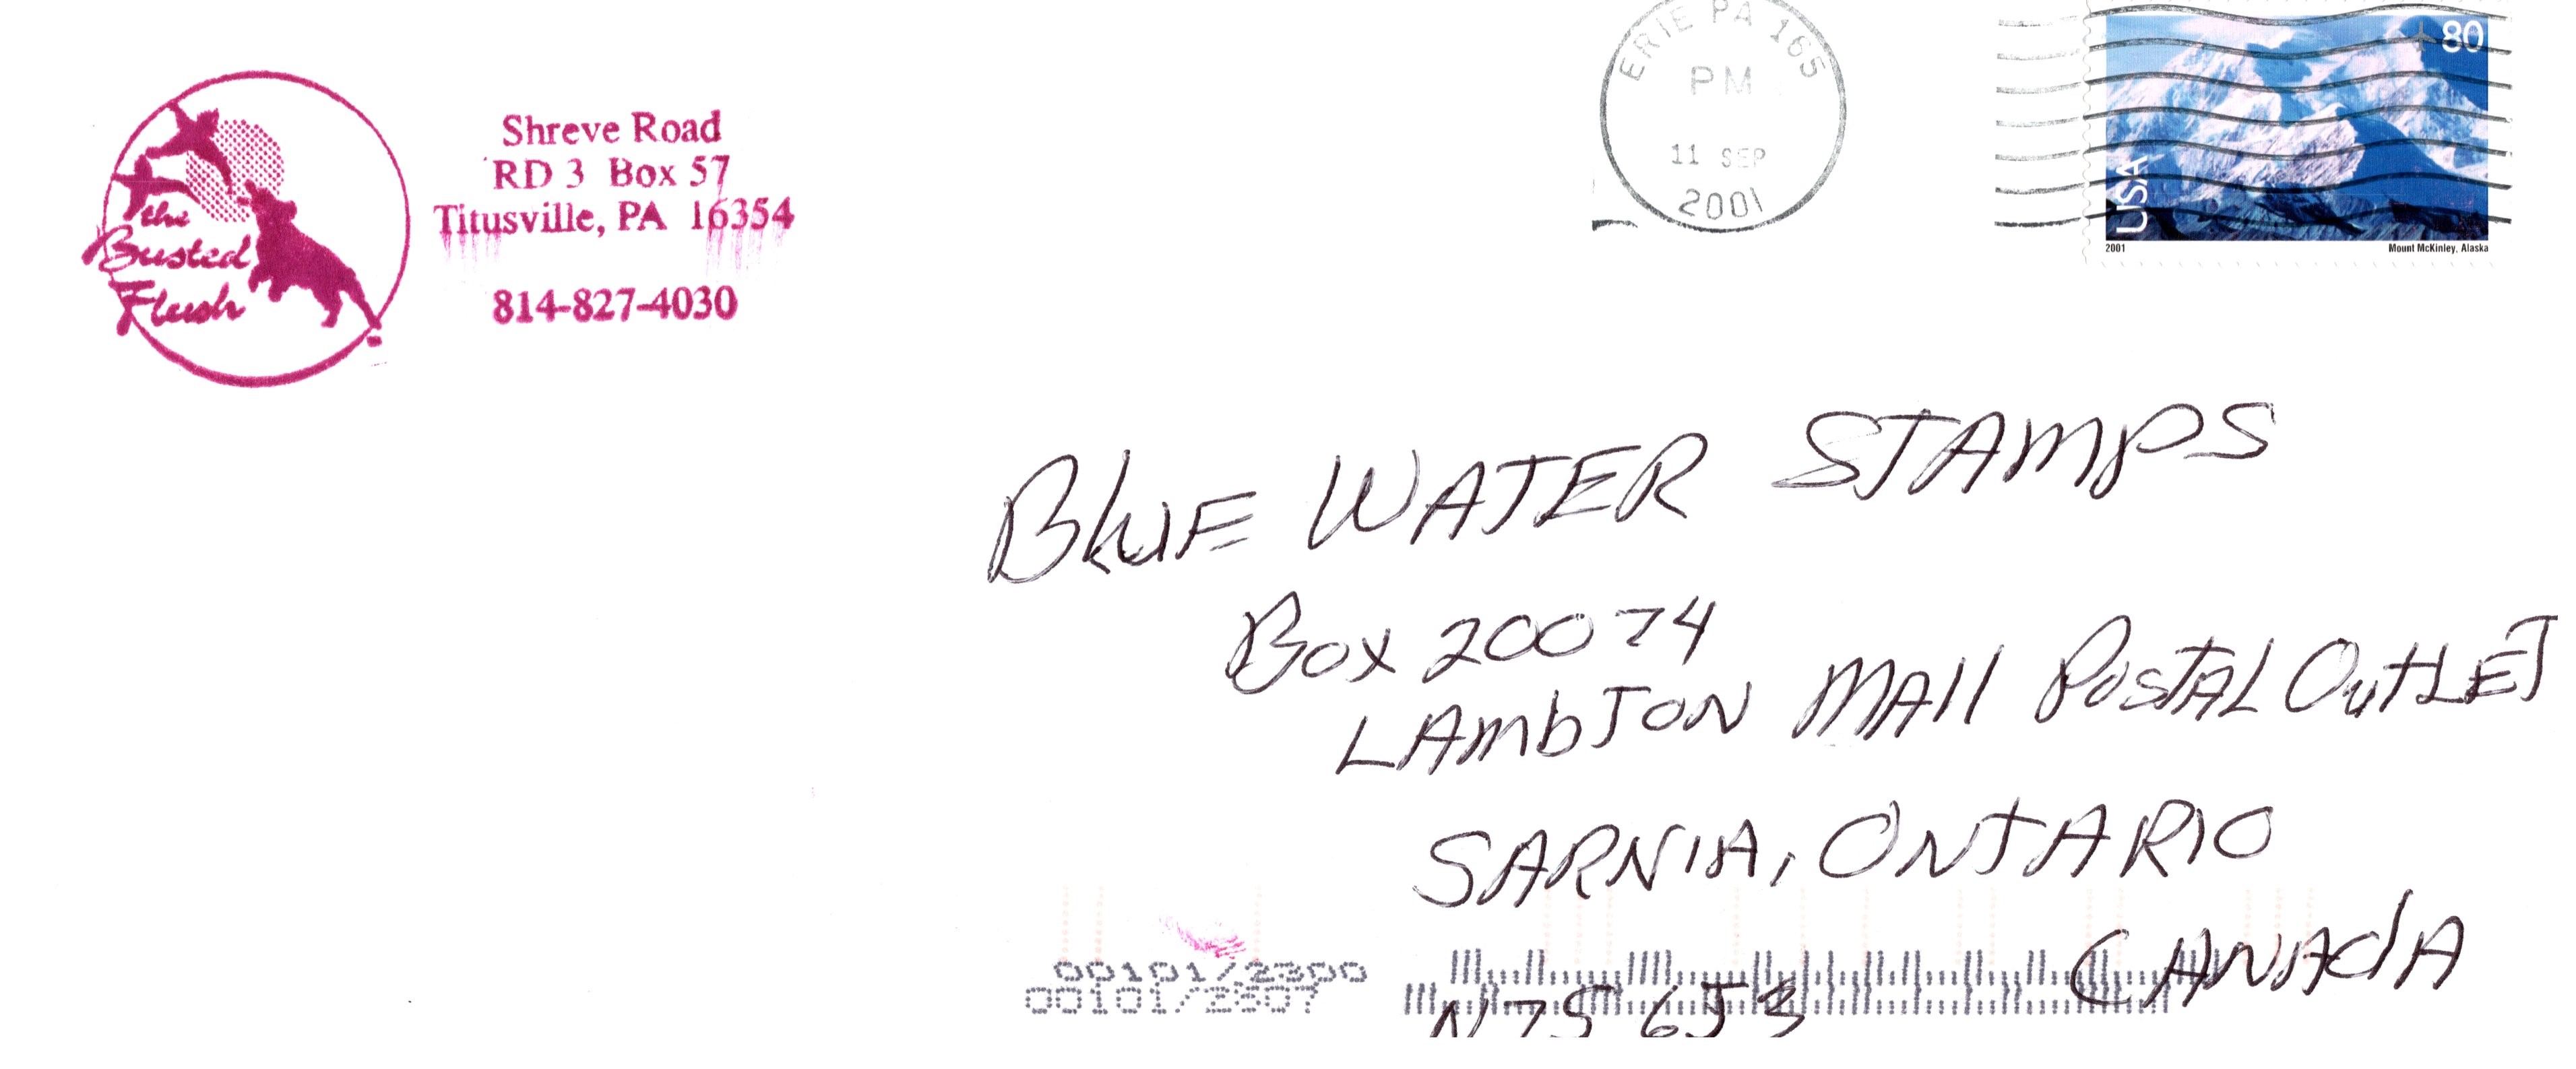 the
Busted
Flush
Shreve Road
RD 3 Box 57
Titusville, PA 16354
814-827-4030
ERIE PA 165
PM
11 SEP
2001
80
USA
2001
Mount McKinley, Alaska
BluE WATER STAMPS
Box 20074
LAmbTON MAll POSTAL OutLET
SARNIA, ONTARIO
CANAdA
N7S 6J3
00101/2300
00101/2307